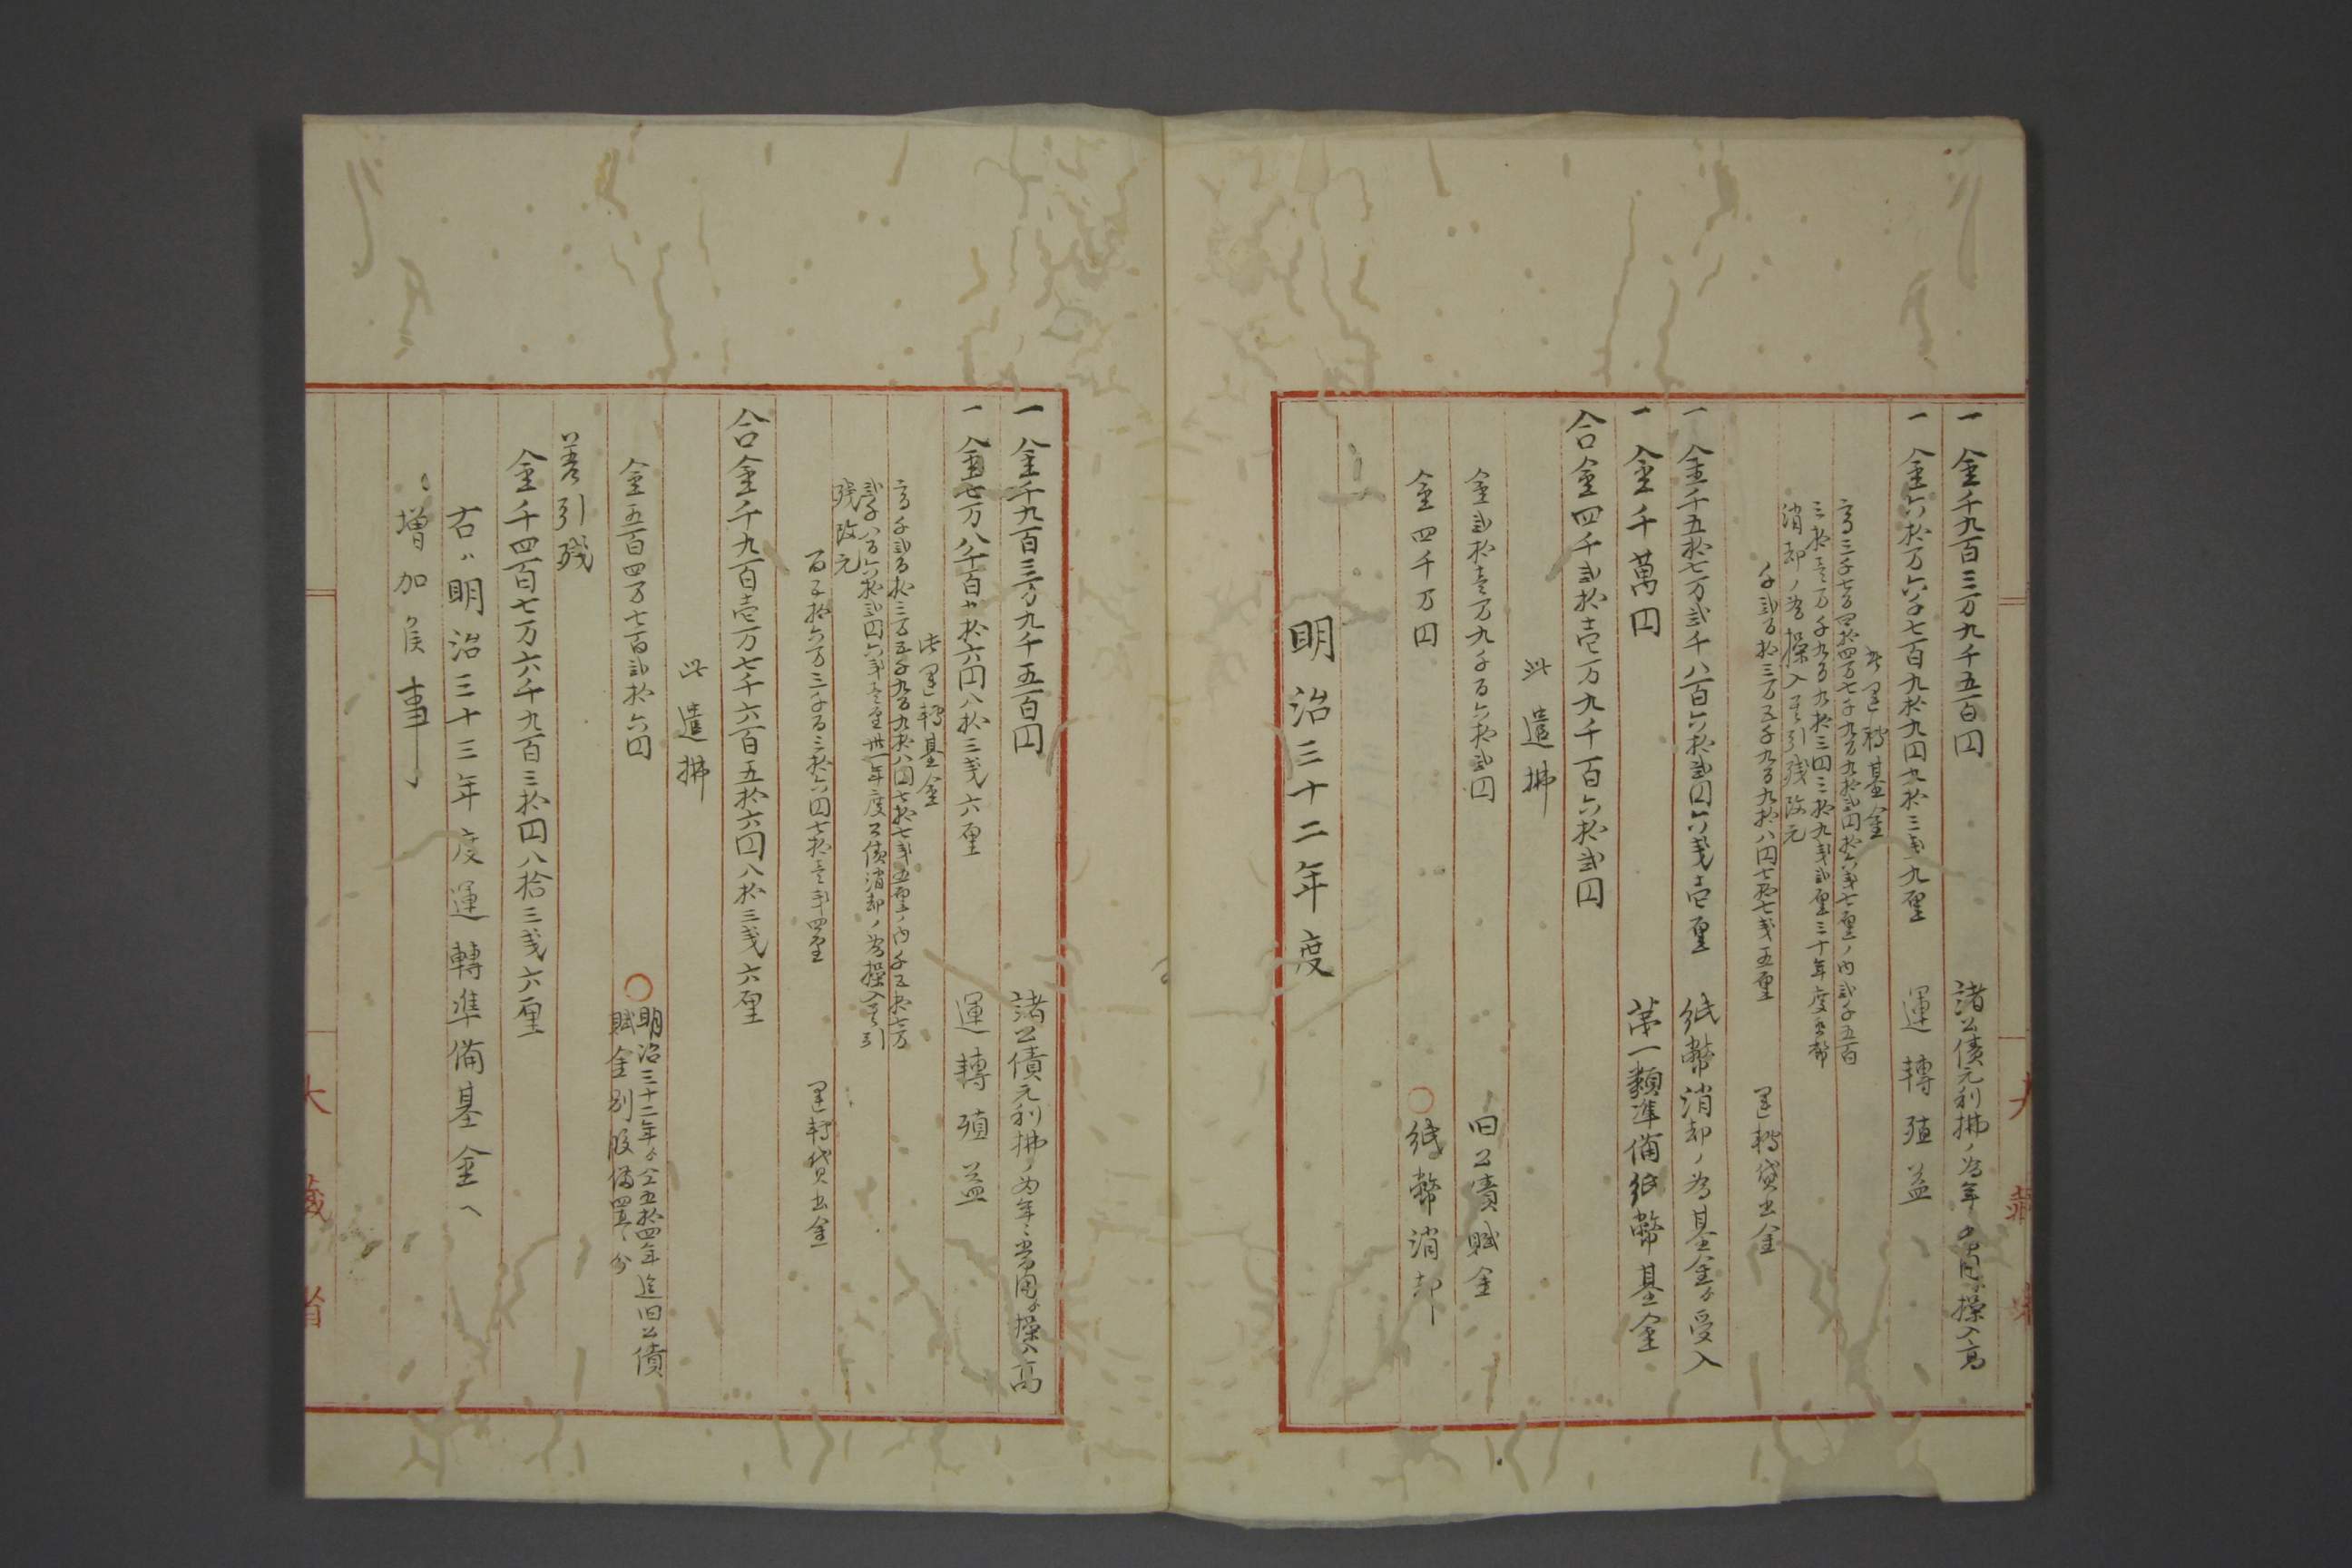 一金千九百三万九千五百円 諸公債元利拂ノ為年々常用ゟ操入高
一金六拾万六千七百九拾九円九拾三戋九厘 運轉殖益
此運轉基金
高三千七百四拾四万七千九百九拾弐円拾六戋七厘ノ内弐千五百
三拾壱万千九百九拾三円三拾九戋弐厘三十年度紙幣
消却ノ為操入差引残改元
千弐百拾三万五千九百九拾八円七拾七戋五厘 運轉貸出金
一金千五拾七万弐千八百六拾弐円六戋壱厘 紙幣消却ノ為基金ゟ受入
一金千萬円 第一類準備紙幣基金
合金四千弐拾壱万九千百六拾弐円
此遣拂
金弐拾壱万九千百六拾弐円 旧公債賦金
金四千万円 紙幣消却
明治三十二年度
一金千九百三万九千五百円 諸公債元利拂ノ為年々常用ゟ操入高
一金七万八千百五拾六円八拾三戋六厘 運轉殖益
此運轉基金
高千弐百拾三万五千九百九拾八円七拾七戋五厘ノ内千五拾七万
弐千八百六拾弐円六戋壱厘卅一年度公債消却ノ為操入差引
残改元
百五拾六万三千百三拾六円七拾壱戋四厘 運轉貸出金
合金千九百壱万七千六百五拾六円八拾三戋六厘
此遣拂
金五百四万七百弐拾六円 明治三十二年ゟ仝五拾四年迄旧公債
賦金別段備置ノ分
差引残
金千四百七万六千九百三拾円八拾三戋六厘
右ハ明治三十三年度運轉準備基金ヘ
増加候事
大藏省